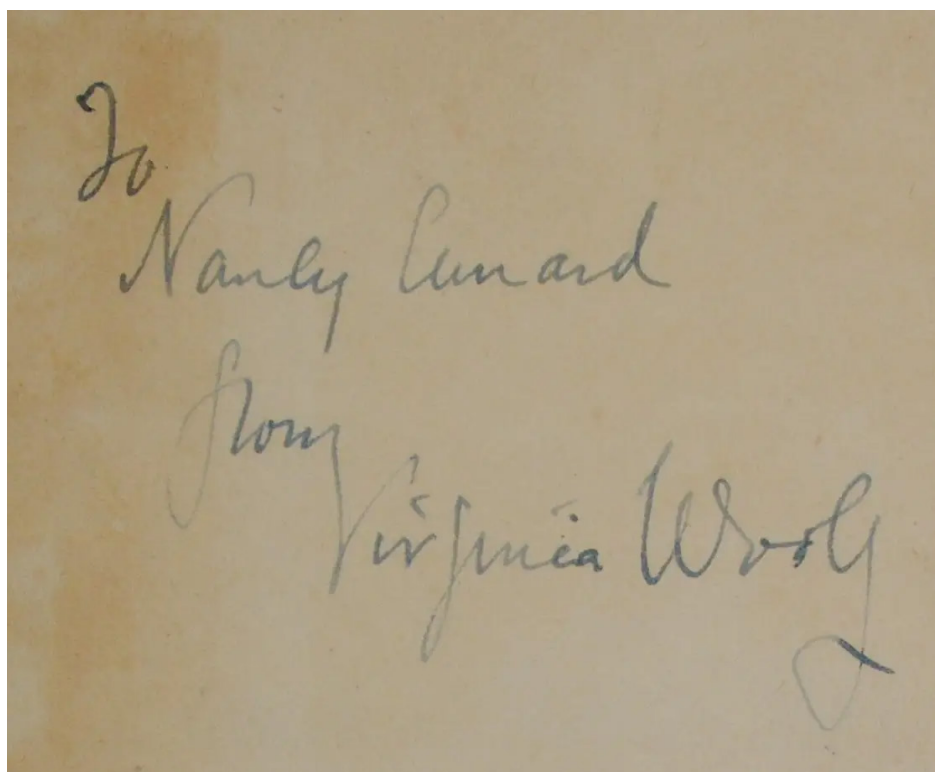 To
Nancy Cunard
from
Virginia Woolf